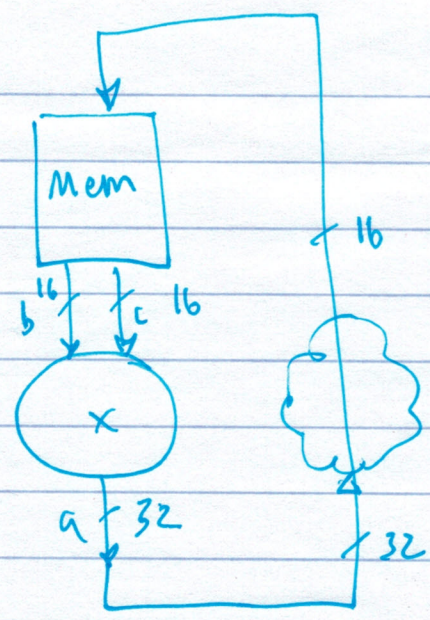 Mem
16
16
b
c
16
x
a
32
32